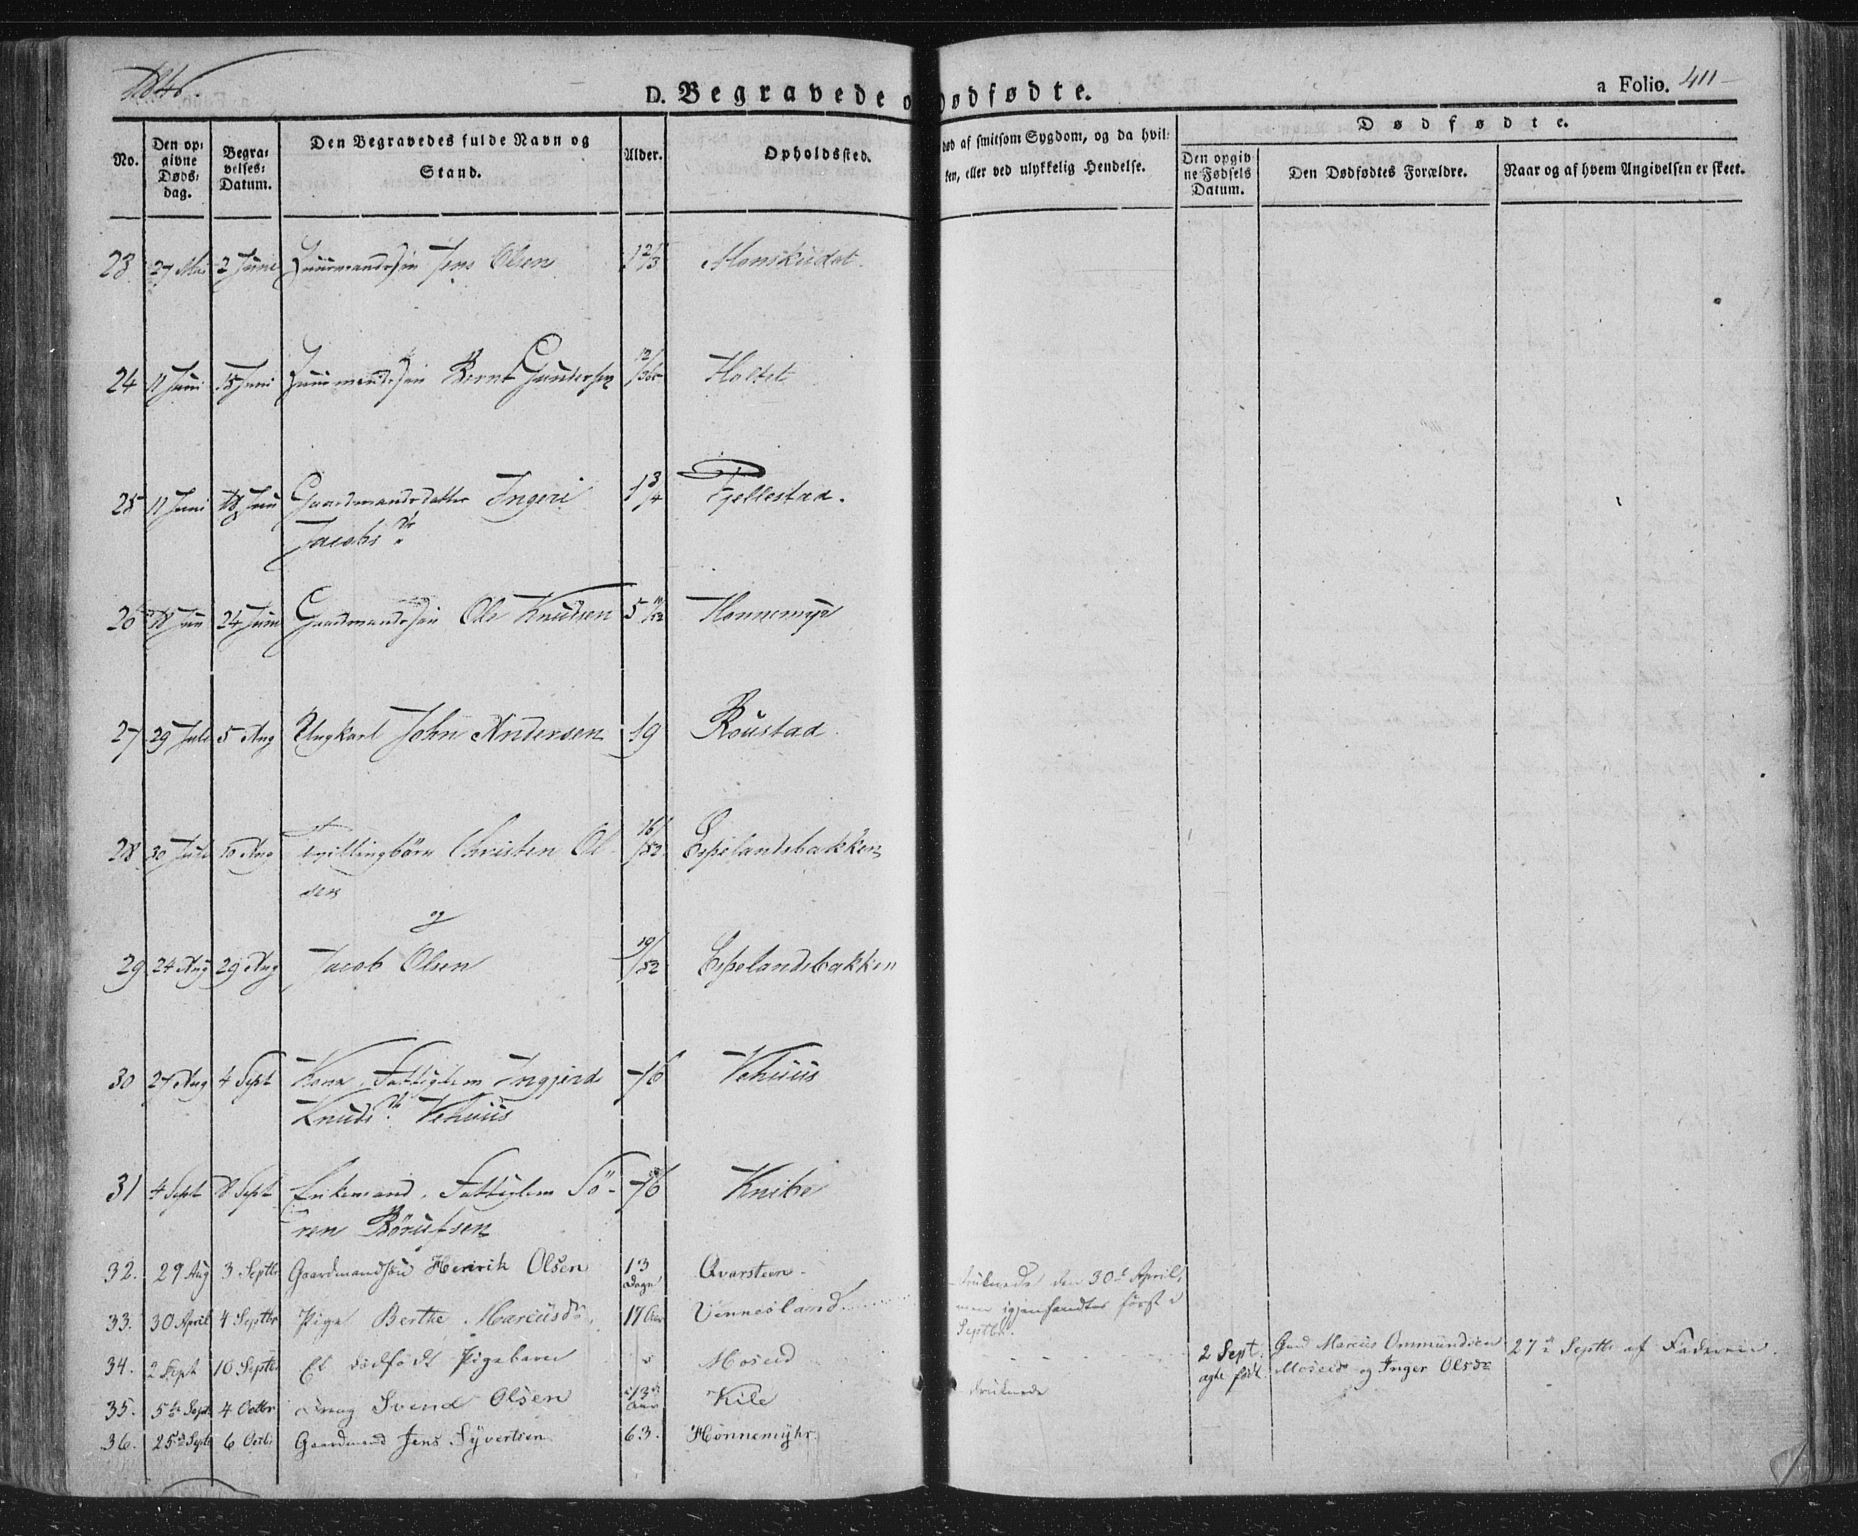 1846.
D. Begravede o Dødfødte.
a Folio. 411
No.
Den opgivne Døds-dag.
Begravelses-Datum.
Den Begravedes fulde Navn og Stand.
Alder.
Opholdssted.
død af smitsom Sygdom, og da hvil-
ken, eller ved ulykkelig Hendelse.
Dødfødte.
Den opgivne Fødsels Datum.
Den Dødfødtes Forældre.
Naar og af hvem Angivelsen er skeet.
23. 27 Mai 2 Juni Huusmandssøn Jens Olsen 1 2/3
24 11 Juni 15 Juni Huusmandssøn Bernt Gundersen 12/365 Holtet
25 11 Juni 18 Juni Gaardmandsdatter Ingeri 1 3/4 Fjellestad.
Jacobs Dr
26 18 Juni 24 Juni Gaardmandssøn Ole Knudsen 5 11/52 Honnemyr
27 29 Juli 5 Aug Ungkarl John Andersen 19 Roustad
28 30 Juli 10 Aug Tvillingbørn Christen Ol- 16/52 Espelandsbakken
sen
og
29 24 Aug 29 Aug Jacob Olsen 19/52 Espelandsbakken
30 27 Aug 4 Sept Kone, Fattiglem Ingjerd 76 Vehuus
Knuds Dr. Vehuus
31 4 Sept 8 Sept Enkemand, Fattiglem Sö- 76 Knibe
ren Börufsen
32. 29 Aug 3 Septbr Gaardmandssøn Henrik Olsen 13 Dage Qvarsteen
33. 30 April 4 Septbr Pige Berthe Marcusd. 17 Aar Vennesland druknede den 30te April,
men igjenfandtes først i
Septbr.
34. 2 Sept 10 Septbr Et dödfödt Pigebarn Moseid 2 Sept. Gmd Marcus Ommundsen 27de Septbr af Faderen.
ægte født. Moseid og Inger Olsdr
35. 5te Sept 4 Octbr Dreng Svend Olsen 13 Aar Kile druknede
36. 25de Sept 6 Octbr Gaardmand Jens Syvertsen 63. Honnemyhr